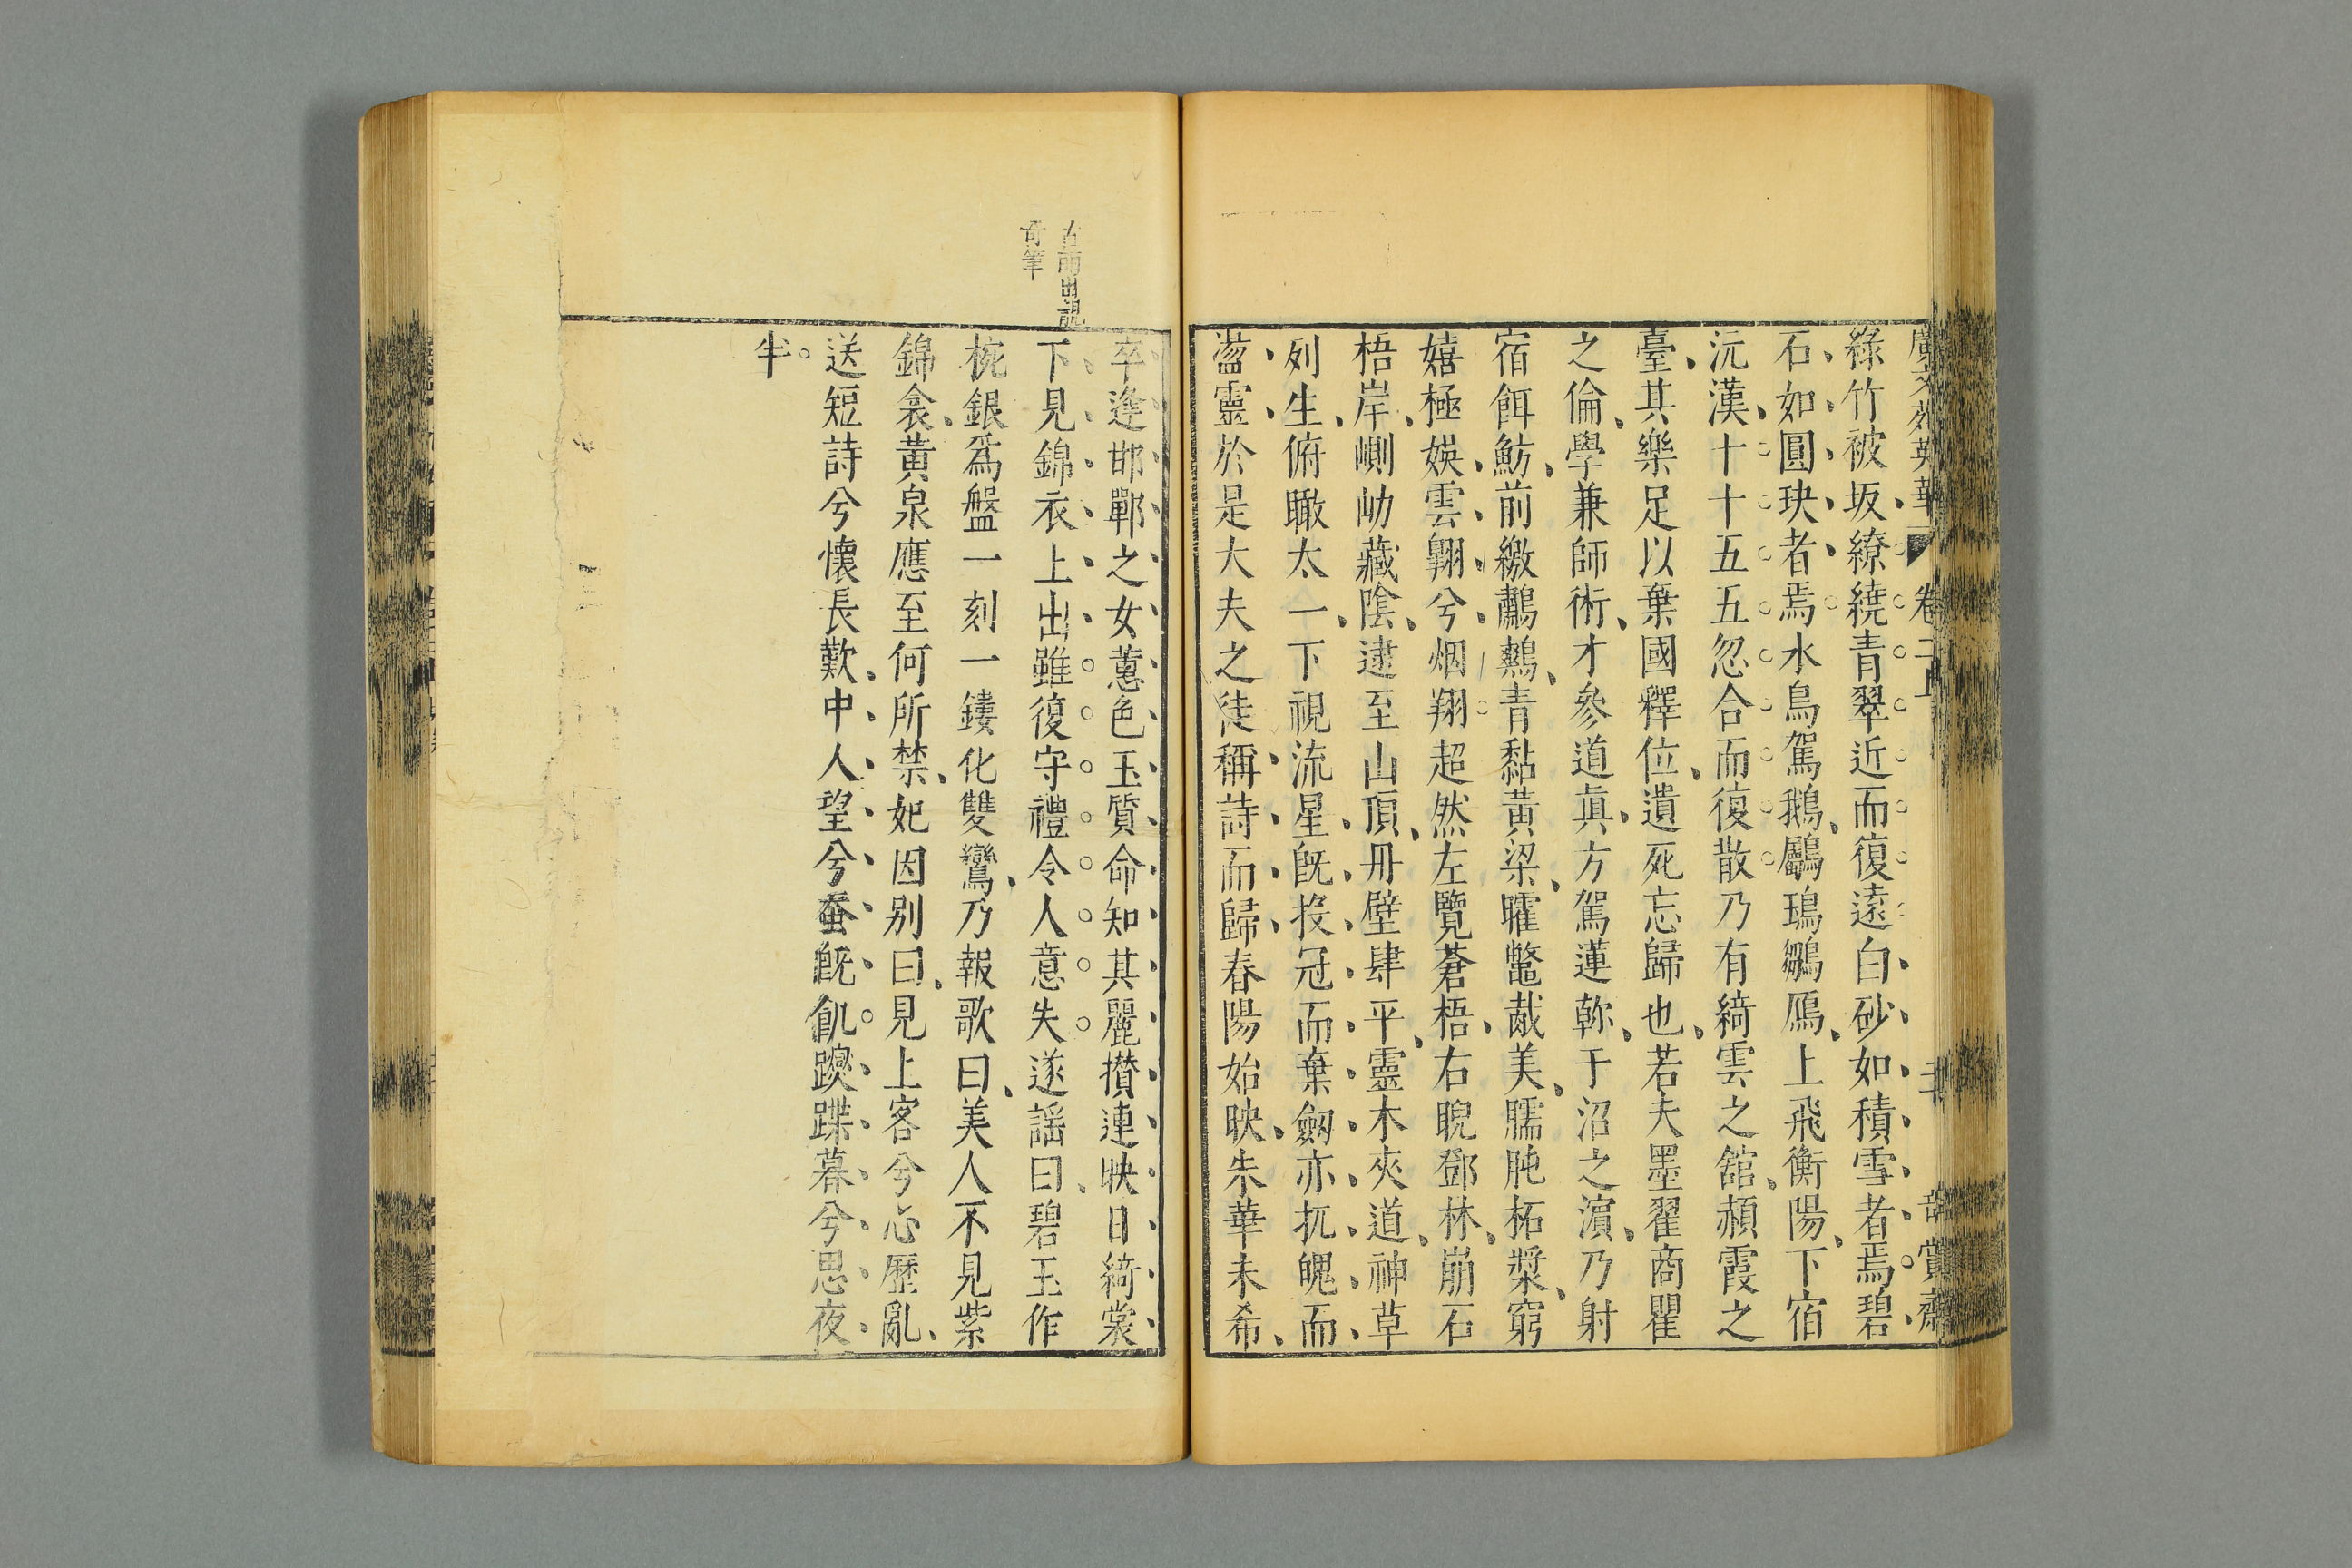 廣文苑英華 卷二上
綠竹被坂繚繞青翠近而復遠白砂如積雪者焉碧
石如圓玦者焉水鳥駕鵝鸀鳿鶵鴈上飛衡陽下宿
沅漢十十五五忽合而復散乃有綺雲之舘赬霞之
臺其樂足以棄國釋位遺死忘歸也若夫墨翟商瞿
之倫學兼師術才參道眞方駕蓮軫于沼之濵乃射
宿餌魴前繳鸕鷀青黏黃粱臛鼈胾美臑肫柘漿窮
嬉極娛雲翺兮烟翔超然左覽蒼梧右睨鄧林崩石
梧岸嵲屴藏陰逮至山頂丹壁肆平靈木夾道神草
列生俯瞰太一下視流星旣投冠而棄劒亦抏魄而
盪靈於是大夫之徒稱詩而歸春陽始映朱華未希
卒逢邯鄲之女蕙色玉質命知其麗攅連映日綺裳
下見錦衣上出雖復守禮令人意失遂謡曰碧玉作
椀銀爲盤一刻一鏤化雙鸞乃報歌曰美人不見紫
錦衾黃泉應至何所禁妃因别曰見上客兮心歷亂
送短詩兮懷長歎中人望兮蚕旣飢躞蹀暮兮思夜
半
奇筆